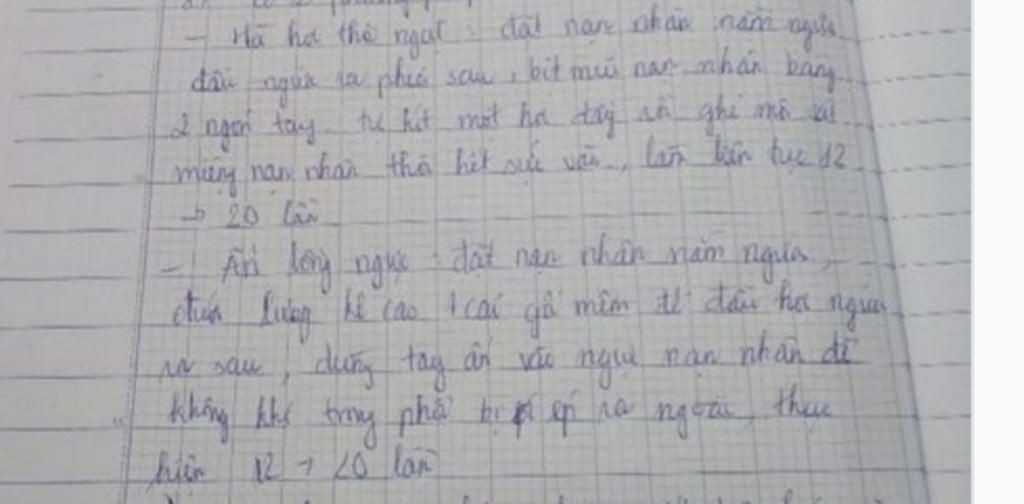 - Hà hơi thổi ngạt : đặt nạn nhân nằm ngửa
đầu ngửa ra phía sau, bịt mũi nạn nhân bằng
2 ngón tay. tự hít một hơi đầy rồi ghé môi
miệng nạn nhân thổi hết sức vào, làm liên tục 12
→ 20 lần
- Ấn lồng ngực : đặt nạn nhân nằm ngửa,
dưới lưng kê cao 1 cái gối mềm để đầu hơi ngửa
ra sau, dùng tay ấn vào ngực nạn nhân để
không khí trong phổi bị ép ra ngoài, thực
hiện 12 → 20 lần